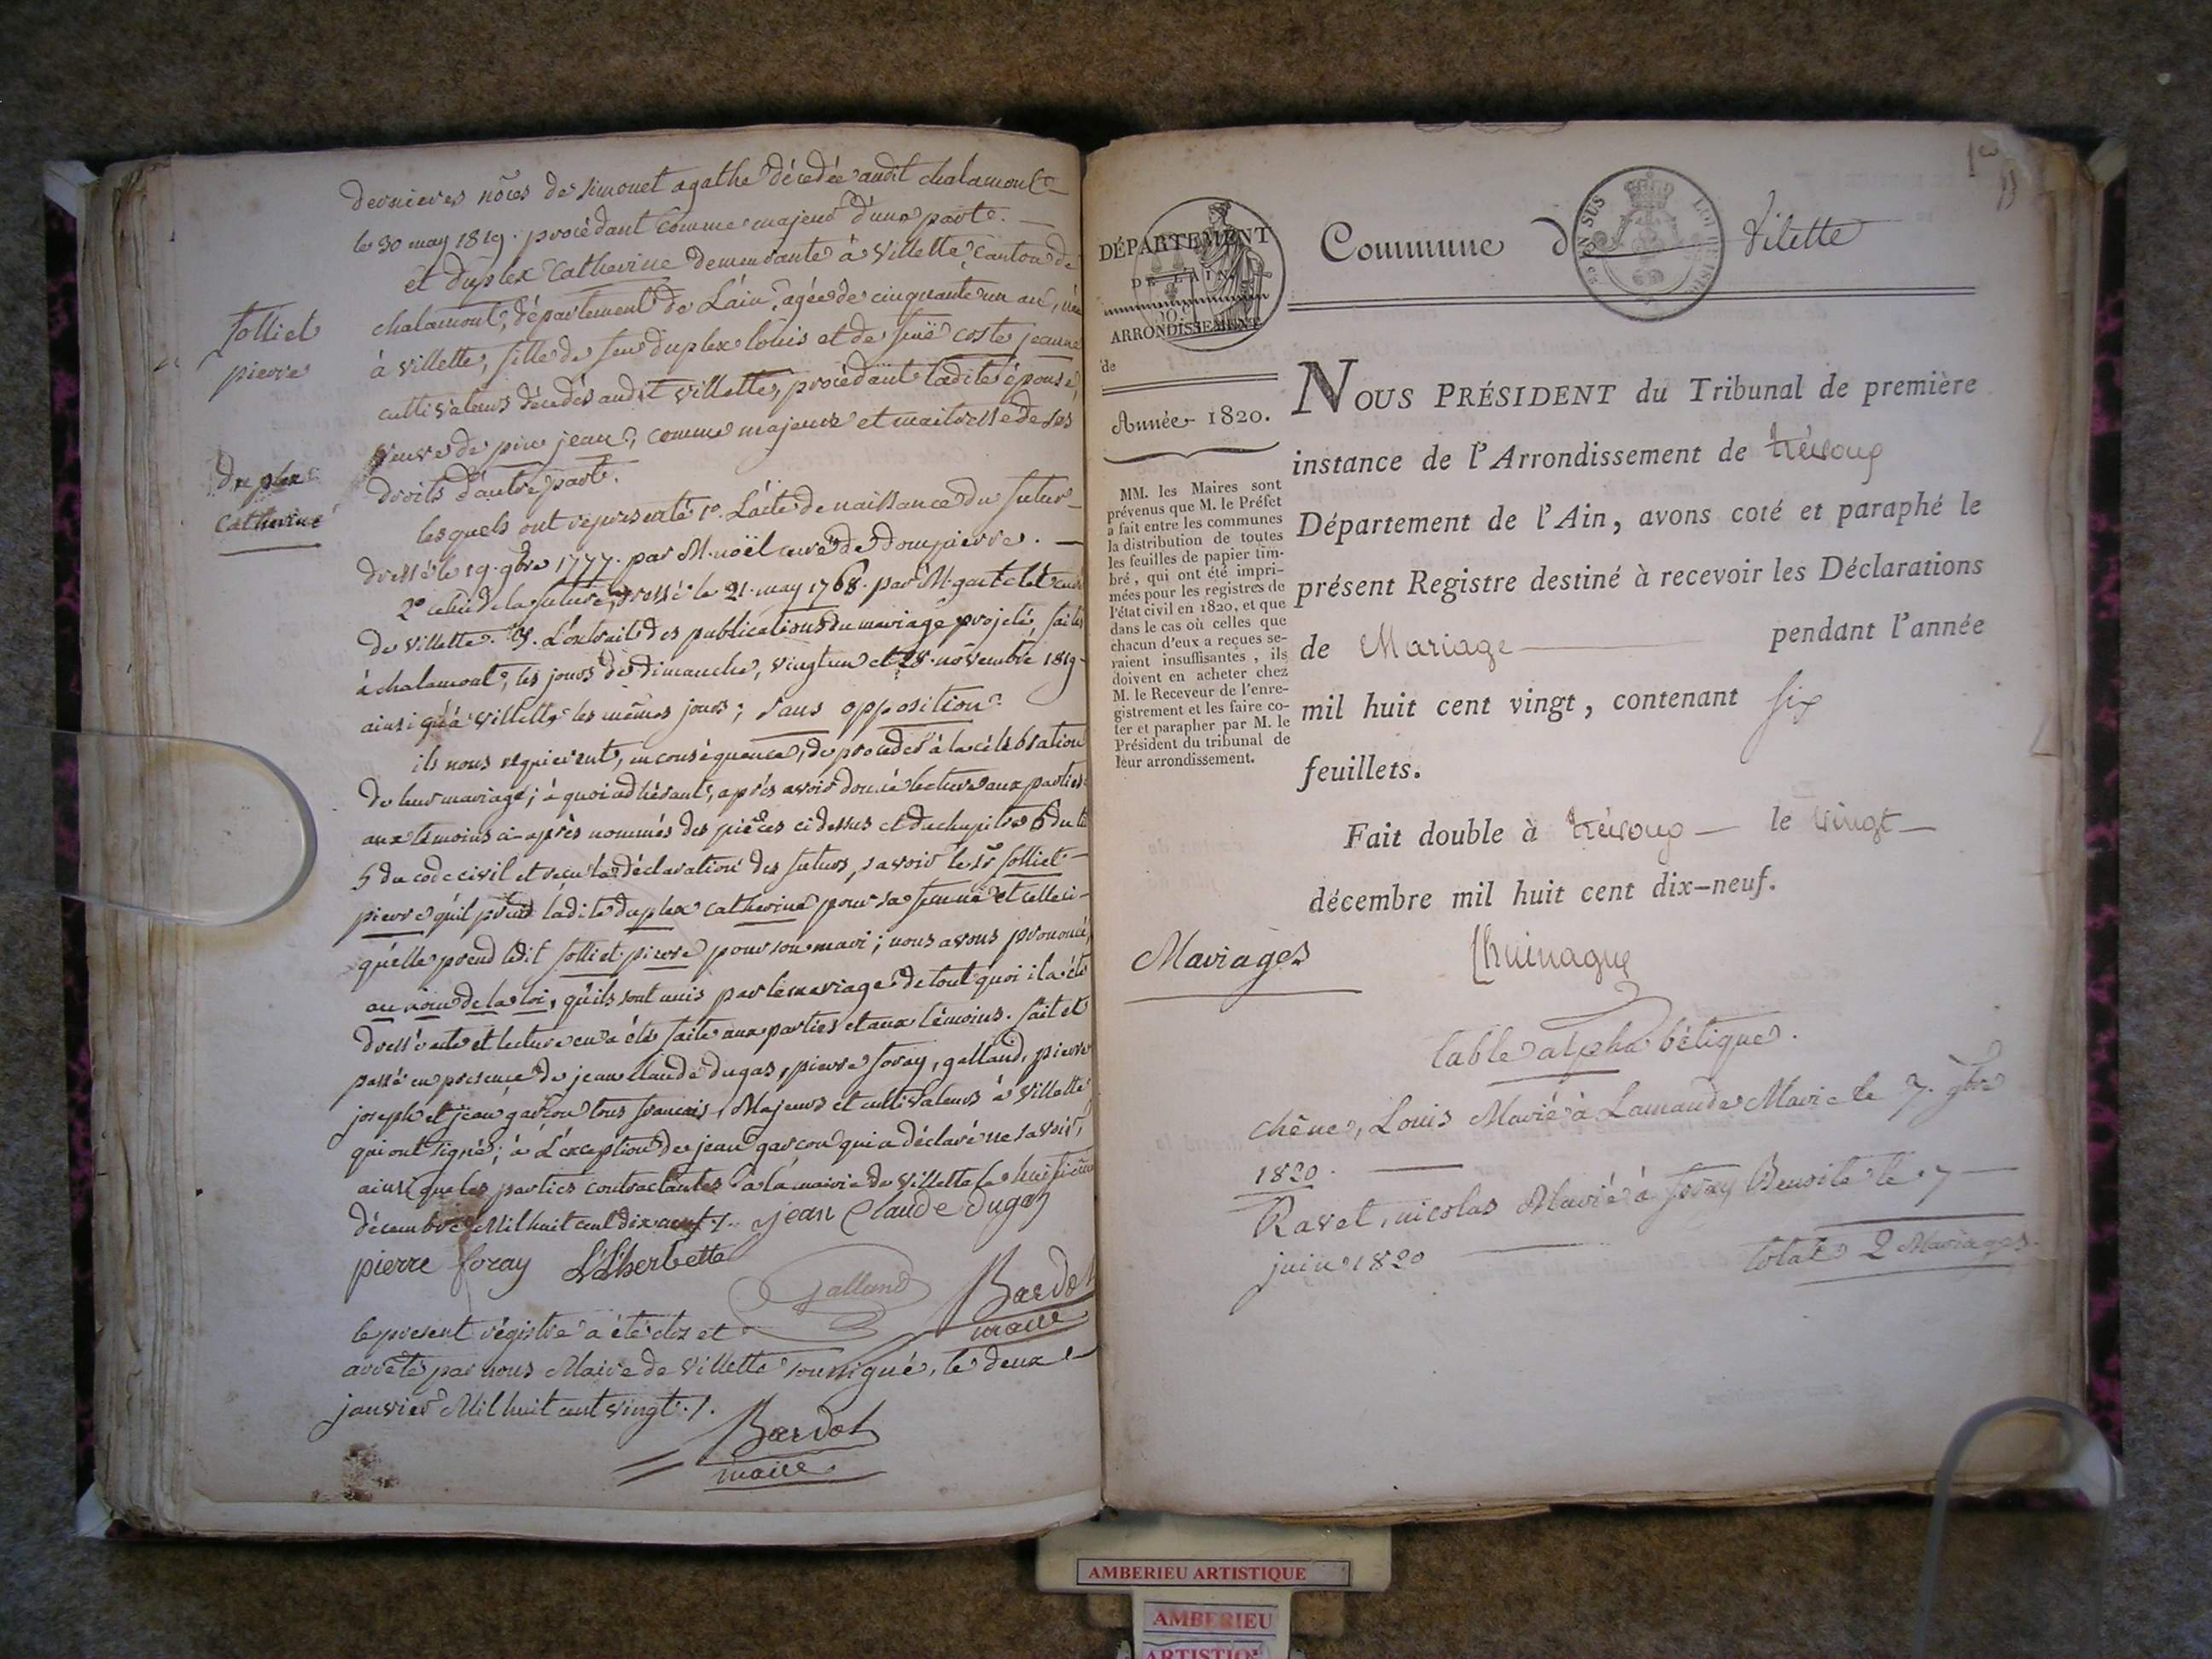 dernieres nôces de simonet agathe décédée audit chalamont
le 30 may 1819. procédant comme majeur d'une part.
et duplex Catherine demeurante à Villette, canton de
chalamont, département de L'ain, agée de cinquante un an, née
à villette, fille de feu duplex louis et de feuë coste jeanne
cultivateurs décedés audit villette, procédant ladite épouse,
veuve de pin jean, comme majeure et maitresse de ses
droits d'autre part.
folliet
pierre
duplex
Catherine
lesquels ont representé 1º. L'acte de naissance du futur
dressé le 19. 9bre 1777. par M. noël curé de dompierre.
2º celui de la future, dressé le 21. may 1768. par M. curé
de villette. 3º. L'extrait des publications du mariage projeté, faites
à chalamont, les jours de dimanche, vingt un et 28. novembre 1819
ainsi qu'à villette les mêmes jours; sans opposition.
ils nous requierent, en conséquence, de proceder à la célébration
de leur mariage; à quoi adhérant, après avoir donné lecture aux parties
aux témoins ci-après nommés des pièces ci dessus et du chapitre 6 du
5 du code civil et recu la déclaration des futurs, savoir le Sr folliet
pierre qu'il prend ladite duplex catherine pour sa femme et celle ci
qu'elle prend ledit folliet pierre pour son mari; nous avons prononcé,
au nom de la loi, qu'ils sont unis par le mariage de tout quoi il a été
dressé acte et lecture en a été faite aux parties et aux témoins. fait et
passé en presence de jean claude dugas, pierre foray, galland, pierre
joseph et jean garcon tous francais, Majeurs et cultivateurs à Villette,
qui ont signé; à L'exception de jean garcon qui a déclaré ne savoir,
ainsi que les parties contractantes à la mairie de Villette le huitieme
décembre Mil huit cent dix neuf ./. jean Claude dugas
pierre foray L'herbette
Galland Bardot
maire
le present régistre a été clos et
arrêté par nous Maire de Villette soussigné, le deux
janvier Mil huit cent vingt ./.
Bardot
maire
DÉPARTEMENT
DE L'AIN
ARRONDISSEMENT
de
Année 1820.
MM. les Maires sont
prévenus que M. le Préfet
a fait entre les communes
la distribution de toutes
les feuilles de papier tim-
bré, qui ont été impri-
mées pour les registres de
l'état civil en 1820, et que
dans le cas où celles que
chacun d'eux a reçues se-
raient insuffisantes, ils
doivent en acheter chez
M. le Receveur de l'enre-
gistrement et les faire co-
ter et parapher par M. le
Président du tribunal de
leur arrondissement.
Commune d Vilette
NOUS PRÉSIDENT du Tribunal de première
instance de l'Arrondissement de trévoux
Département de l'Ain, avons coté et paraphé le
présent Registre destiné à recevoir les Déclarations
de Mariage pendant l'année
mil huit cent vingt, contenant six
feuillets.
Fait double à trévoux le vingt
décembre mil huit cent dix-neuf.
Mariages
table alphabétique.
chêne, Louis Marié à Lamande Marie le 7. 9bre
1820.
Ravet, nicolas Marié à foray Benoite le 7
juin 1820
total 2 Mariages.
AMBERIEU ARTISTIQUE
AMBERIEU
ARTISTIQUE